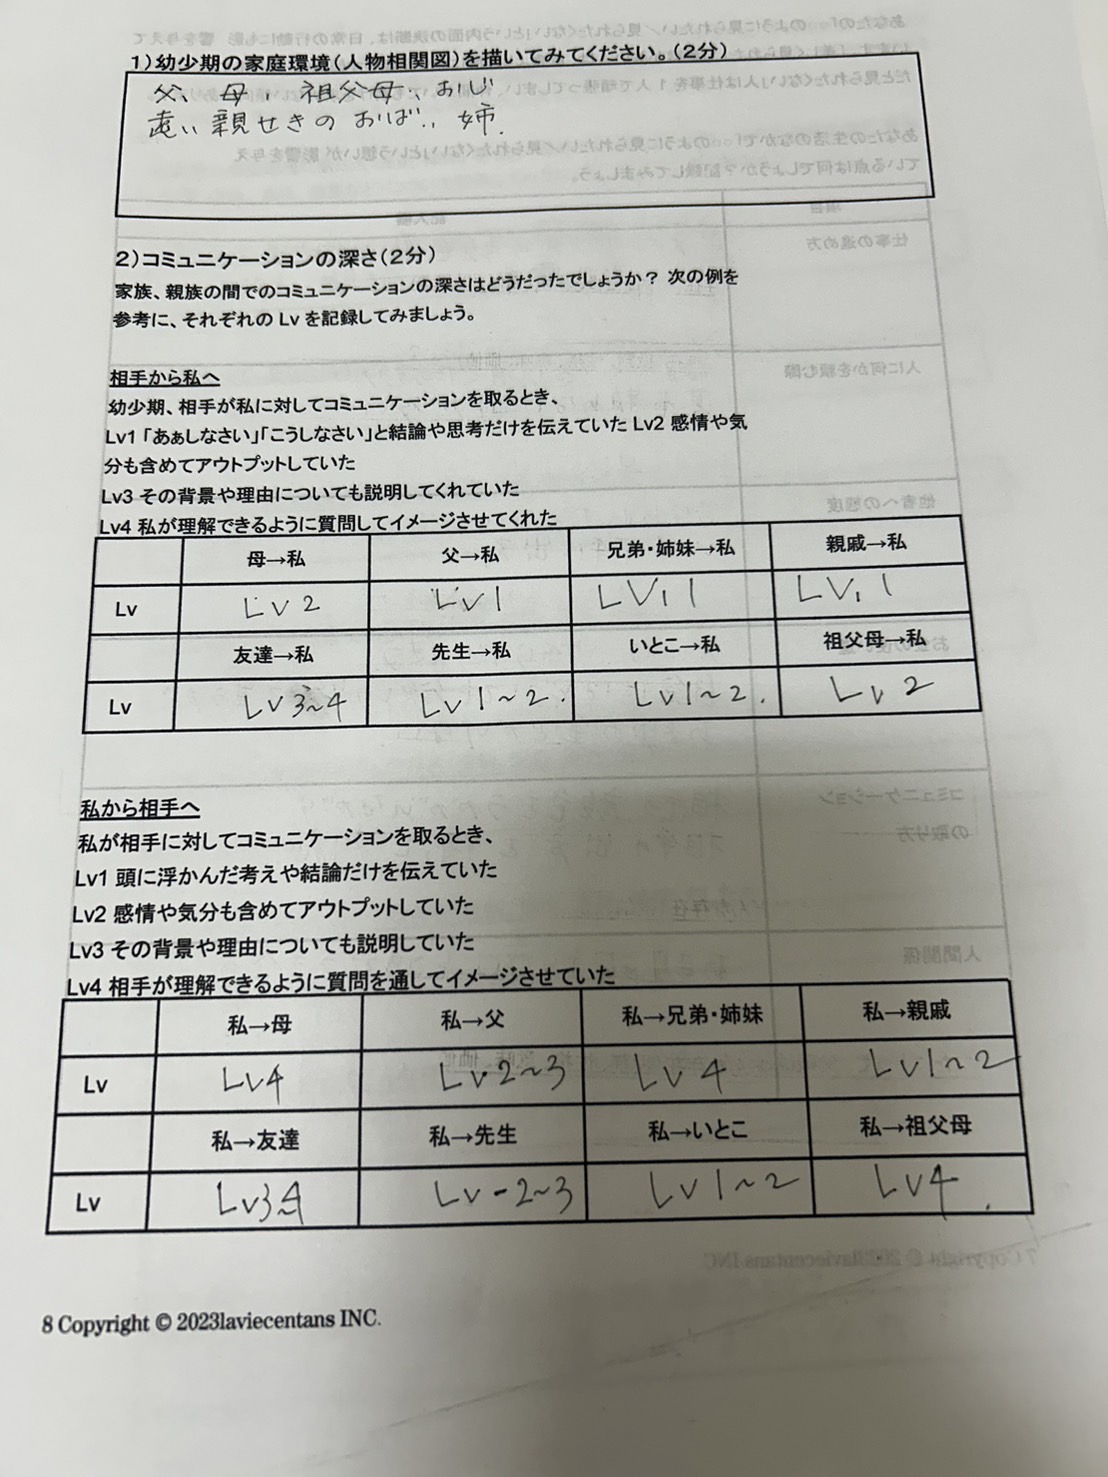 1)幼少期の家庭環境(人物相関図)を描いてみてください。(2分)
父、母、祖父母、おじ
遠い親せきのおば、姉、
2)コミュニケーションの深さ(2分)
家族、親族の間でのコミュニケーションの深さはどうだったでしょうか? 次の例を
参考に、それぞれの Lv を記録してみましょう。
相手から私へ
幼少期、相手が私に対してコミュニケーションを取るとき、
Lv1「あぁしなさい」「こうしなさい」と結論や思考だけを伝えていた Lv2 感情や気
分も含めてアウトプットしていた
Lv3 その背景や理由についても説明してくれていた
Lv4 私が理解できるように質問してイメージさせてくれた
母→私 父→私 兄弟・姉妹→私 親戚→私
Lv Lv2 Lv1 LV,1 LV,1
友達→私 先生→私 いとこ→私 祖父母→私
Lv Lv3~4 Lv1~2. Lv1~2. Lv2
私から相手へ
私が相手に対してコミュニケーションを取るとき、
Lv1 頭に浮かんだ考えや結論だけを伝えていた
Lv2 感情や気分も含めてアウトプットしていた
Lv3 その背景や理由についても説明していた
Lv4 相手が理解できるように質問を通してイメージさせていた
私→母 私→父 私→兄弟・姉妹 私→親戚
Lv Lv4 Lv2~3 Lv4 Lv1~2
私→友達 私→先生 私→いとこ 私→祖父母
Lv Lv3~4 Lv-2~3 Lv1~2 Lv4
8 Copyright © 2023laviecentans INC.